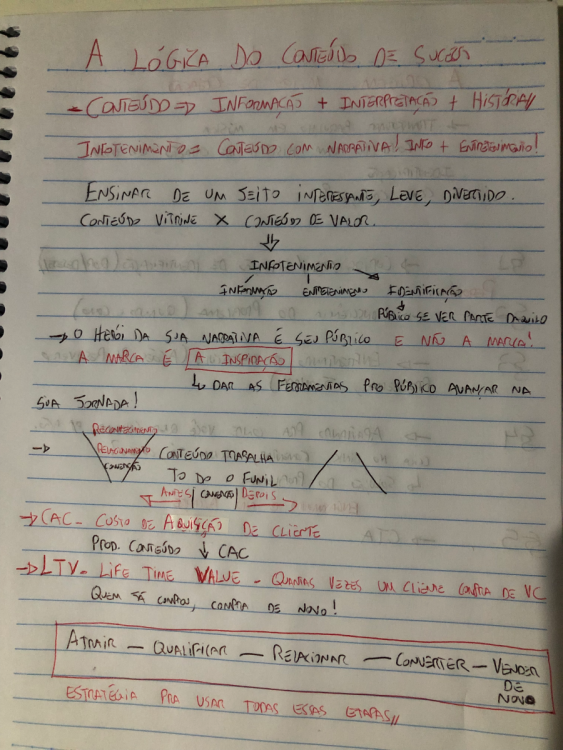 A LÓGICA DO CONTEÚDO DE SUCESSO
- CONTEÚDO => INFORMAÇÃO + INTERPRETAÇÃO + HISTÓRIA//
INFOTENIMENTO = CONTEÚDO COM NARRATIVA! INFO + ENTRETENIMENTO!
ENSINAR DE UM JEITO INTERESSANTE, LEVE, DIVERTIDO.
CONTEÚDO VITRINE X CONTEÚDO DE VALOR.
⇓
INFOTENIMENTO
INFORMAÇÃO ENTRETENIMENTO IDENTIFICAÇÃO
↓
PÚBLICO SE VER PARTE DAQUILO
→ O HERÓI DA SUA NARRATIVA É SEU PÚBLICO E NÃO A MARCA!
A MARCA É A INSPIRAÇÃO
↳ DAR AS FERRAMENTAS PRO PÚBLICO AVANÇAR NA
SUA JORNADA!
RECONHECIMENTO
RELACIONAMENTO
CONVERSÃO
→ CONTEÚDO TRABALHA
TODO O FUNIL
← ANTES | CONVERSÃO | DEPOIS →
→ CAC - CUSTO DE AQUISIÇÃO DE CLIENTE
PROD. CONTEÚDO ↓ CAC
→ LTV - LIFE TIME VALUE - QUANTAS VEZES UM CLIENTE COMPRA DE VC
QUEM JÁ COMPROU, COMPRA DE NOVO!
ATRAIR — QUALIFICAR — RELACIONAR — CONVERTER — VENDER
DE
NOVO
ESTRATÉGIA PRA USAR TODAS ESSAS ETAPAS//